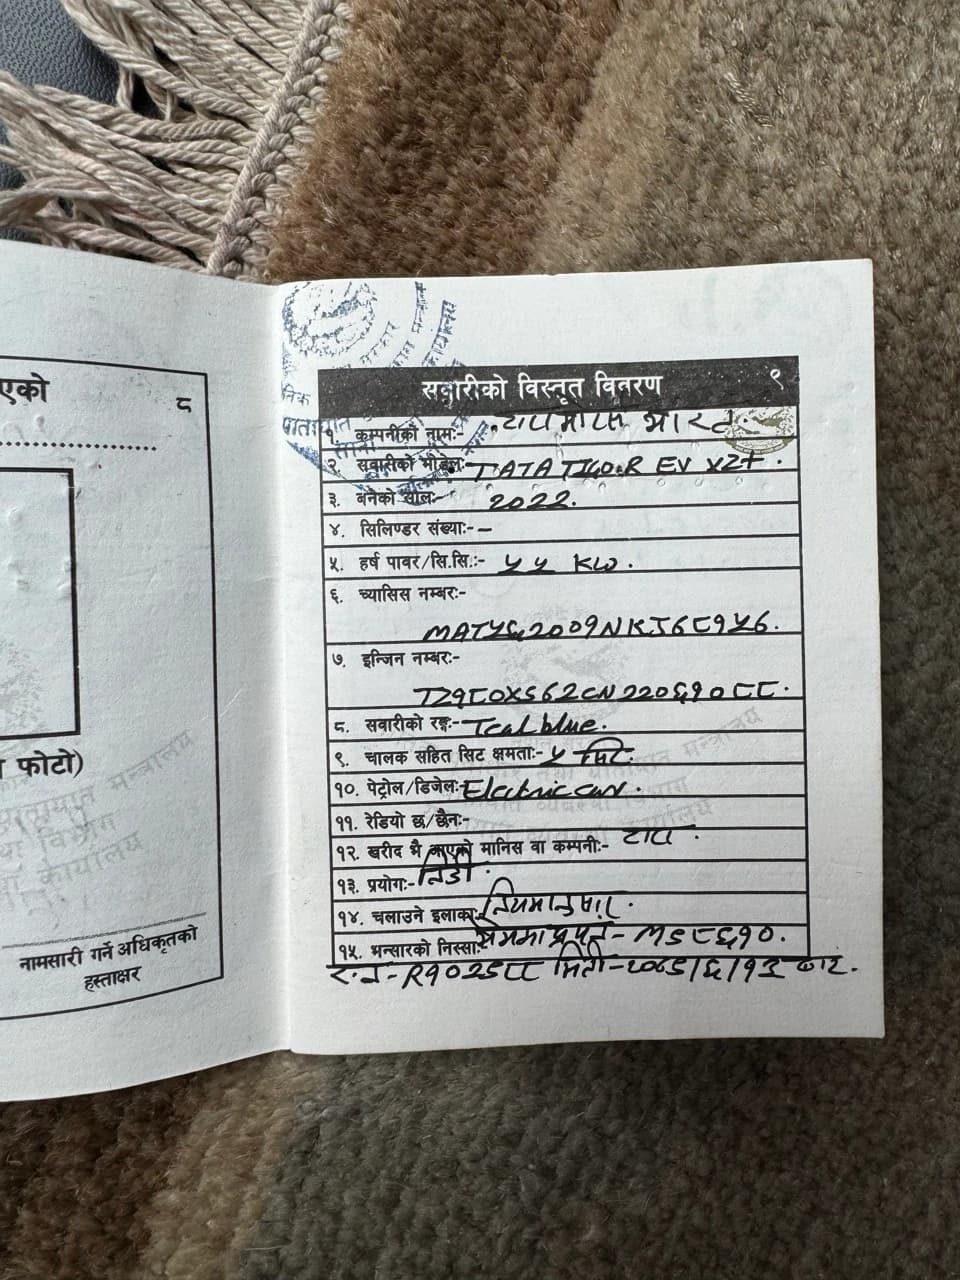 एको
८
फोटो)
नामसारी गर्ने अधिकृतको
हस्ताक्षर
सवारीको विस्तृत विवरण ९
१. कम्पनीको नामः- टाटा मोटर्स भारत.
२. सवारीको मोडेलः- TATA TIGOR EV XZ+.
३. बनेको सालः- 2022.
४. सिलिण्डर संख्याः- -
५. हर्ष पावर/सि.सि.:- ५५ KW.
६. च्यासिस नम्बरः-
७. इन्जिन नम्बरः-
८. सवारीको रङ्गः- Teal blue.
९. चालक सहित सिट क्षमताः- ५ सिट.
१०. पेट्रोल/डिजेलः- Electric car.
११. रेडियो छ/छैनः-
१२. खरीद भै आएको मानिस वा कम्पनीः- टाटा.
१३. प्रयोगः- निजी.
१४. चलाउने इलाकाः- नियमानुसार.
१५. भन्सारको निस्साः-